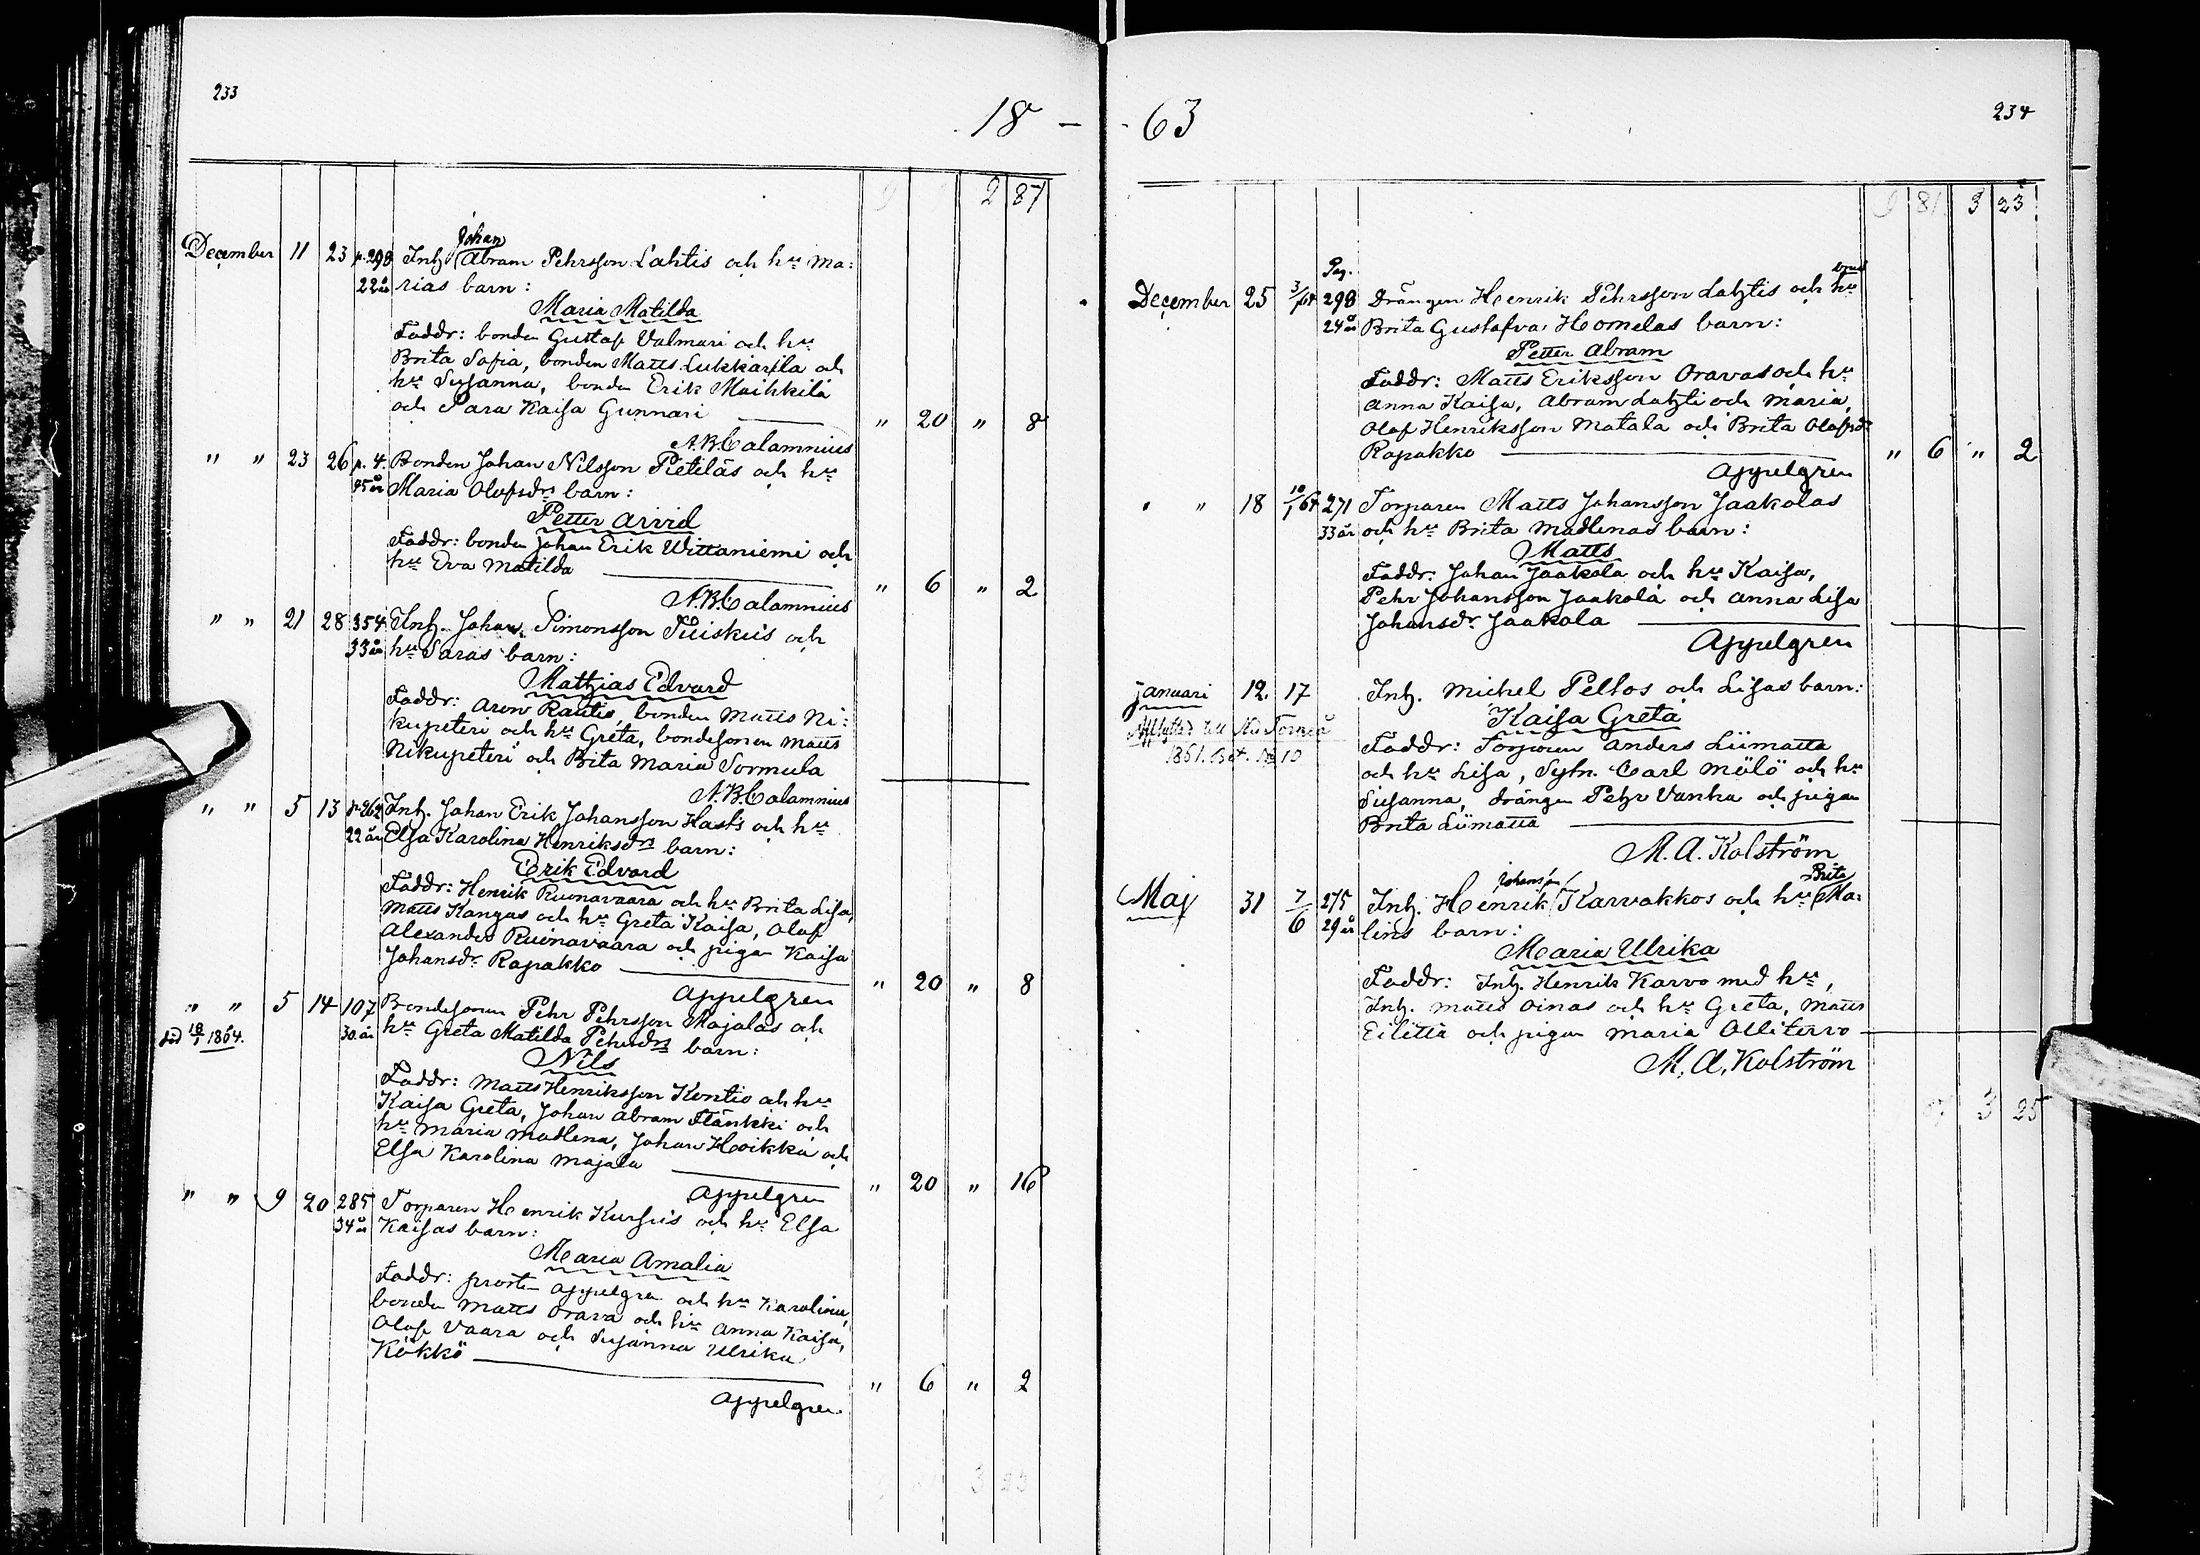 233
18 –
2 87
Johan
December 11 23 p. 298 Inh. Abram Pehrsson Lahtis och hu Ma:
22 år rias barn:
Maria Matilda
Faddr: bonden Gustaf Valmari och hu
Brita Sofia, bonden Matts Lukkarila och
hu Susanna, bonden Erik Maihkila
och Sara Kaisa Gunnari " 20 " 8
A.B. Calamnius
" " 23 26 p. 4. Bonden Johan Nilsson Pietiläs och hu
25 år Maria Olofsdrs barn:
Petter Arvid
Faddr: bonden Johan Erik Wittaniemi och
hu Eva Matilda " 6 " 2
A.B. Calamnius
" " 21 28 354 Inh. Johan Simonsson Tuiskus och
33 år hu Saras barn:
Mathias Edvard
Faddr: Aron Rautio, bonden Matts Ni:
kupeteri och hu Greta, bondesonen Matts
Nikupeteri och Brita Maria Sormula
A.B. Calamnius
" " 5 13 p. 262 Inh. Johan Erik Johansson Hasts och hu
22 år Elsa Karolina Henriksdrs barn:
Erik Edvard
Faddr: Henrik Ruonavaara och hu Brita Lisa,
Matts Kangas och hu Greta Kaisa, Olof
Alexander Ruonavaara och pigan Kaisa
Johansdr. Rapakko " 20 " 8
Appelgren
" " 5 14 107 Bondesonen Pehr Pehrsson Majalas och
död 10/1 1864. 30 år hu Greta Matilda Pehrsdrs barn:
Nils
Faddr: Matts Henriksson Kontio och hu
Kaisa Greta, Johan Abram Flänkki och
hu Maria Madlena, Johan Hoikka och
Elsa Karolina Majala " 20 " 16
Appelgren
" " 9 20 285 Torparen Henrik Kursus och hu Elsa
34 år Kaisas barn:
Maria Amalia
Faddr: prosten Appelgren och hu Karolina,
bonden Matts Orava och hu Anna Kaisa,
Olof Vaara och Susanna Ulrika
Kökkö " 6 " 2
Appelgren
3 23
- 63
234
9 81 3 23
Pag. brud
December 25 3/1 64 298 Drängen Henrik Pehrsson Lahtis och hu
24 år Brita Gustafva Homelas barn:
Petter Abram
Faddr: Matts Eriksson Oravas och hu
Anna Kaisa, Abram Lahti och Maria,
Olof Henriksson Matala och Brita Olofsdr
Rapakko " 6 " 2
Appelgren
" " 18 10/1 64 271 Torparen Matts Johansson Jaakolas
33 år och hu Brita Madlenas barn:
Matts
Faddr: Johan Jaakola och hu Kaisa,
Pehr Johansson Jaakola och Anna Lisa
Johansdr. Jaakola
Appelgren
Januari 12. 17 Inh. Michel Peltos och Lisas barn:
Kaisa Greta
Afflyttad till Ned Torneå
1861. Bet. No 10
Faddr: Torparen Anders Liimatta
och hu Lisa, Sytn. Carl Mölö och hu
Susanna, drängen Pehr Vanha och pigan
Brita Liimatta
M. A. Kolström
Johansson Brita
Maj 31 7/6 275 Inh. Henrik Karvakkos och hu Ma:
29 år lins barn:
Maria Ulrika
Faddr: Inh. Henrik Karvo med hu,
Inh. Matts Oinas och hu Greta, Matts
Eilittä och pigan Maria Ollitervo
M. A. Kolström
3 25